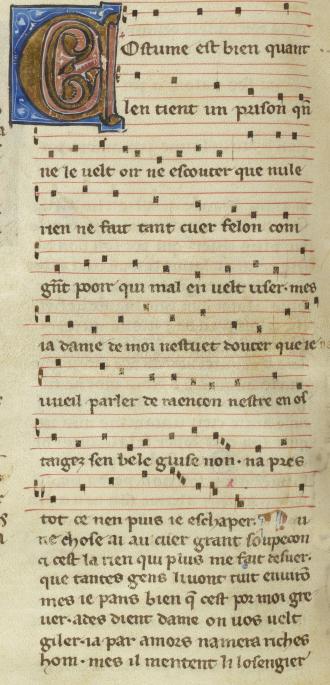 Costume est bien quant
len tient un prison qñ
ne le uelt oir ne escouter que nule
rien ne fait tant cuer felon com
gñt pooir qui mal en uelt user· mes
ia dame de moi nestuet douter que ie n
uueil parler de raencon nestre en os
taigez sen bele guise non· na pres
tot ce nen puis ie eschaper. u
ne chose ai au cuer grant soupecon
ci cest la rien qui plus me fait desuer·
que tantes gens li uont tuit enuirō
mes ie pans bien q̄ cest por moi gre
uer· ades dient dame on uos uelt
giler· ia par amors namera riches
hom· mes il mentent li losengier